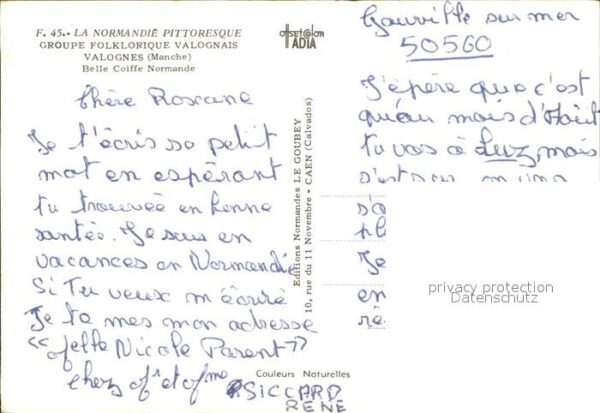 F. 45. - LA NORMANDIE PITTORESQUE
GROUPE FOLKLORIQUE VALOGNAIS
VALOGNES (Manche)
Belle Coiffe Normande
offset color
IADIA
Chère Roxane
Je t'écris se petit
mot en espérant
tu trouvée en bonne
santée. Je suis en
vacances en Normandie
Si Tu veux m'écrire
Je te mes mon adresse
"Melle Nicole Parent"
chez Mr et Mme SICCARD
RENE
Editions Normandes LE GOUBEY
10, rue du 11 Novembre - CAEN (Calvados)
Couleurs Naturelles
Gouville sur mer
50560
J'épère que c'est
qu'au mois d'Août
tu vas à Luz, mais
s'est
s'a
pl
Je
en
ré
privacy protection
Datenschutz